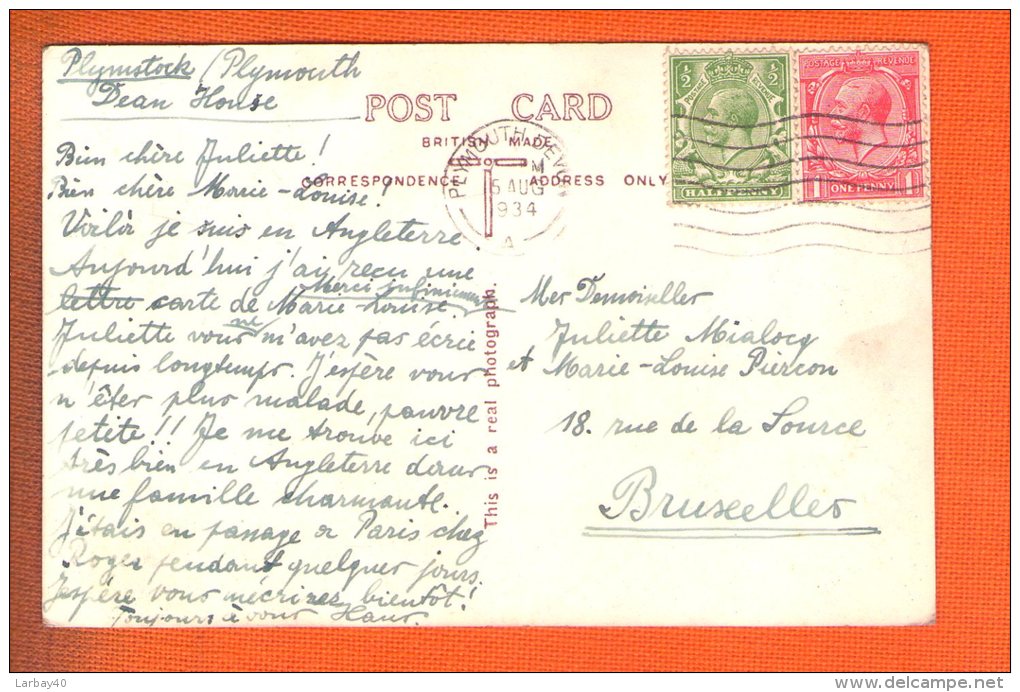 Plymstock / Plymouth
Dean House
POST CARD
BRITISH MADE
CORRESPONDENCE ADDRESS ONLY
PLYMOUTH DEVON
M
5 AUG
1934
A
1/2 1/2
POSTAGE REVENUE
HALFPENNY
POSTAGE REVENUE
1 ONE PENNY 1
Bien chère Juliette!
Bien chère Marie-Louise!
Voilà je suis en Angleterre.
Aujourd'hui j'ai reçu une
lettre carte de Marie-Louise.
Merci infiniment
Juliette vous ne m'avez pas écrie
depuis longtemps. J'espère vous
n'êter plus malade, pauvre
petite!! Je me trouve ici
très bien en Angleterre daur
une famille charmante.
J'étais en passage à Paris chez
Roger pendant quelques jours.
J'espère vous mécrirez bientôt!
Toujours à vous Hans.
This is a real photograph.
Mes Demoiselles
Juliette Mialocq
et Marie-Louise Piercon
18. rue de la Source
Bruxelles
Larbay40
www.delcampe.net